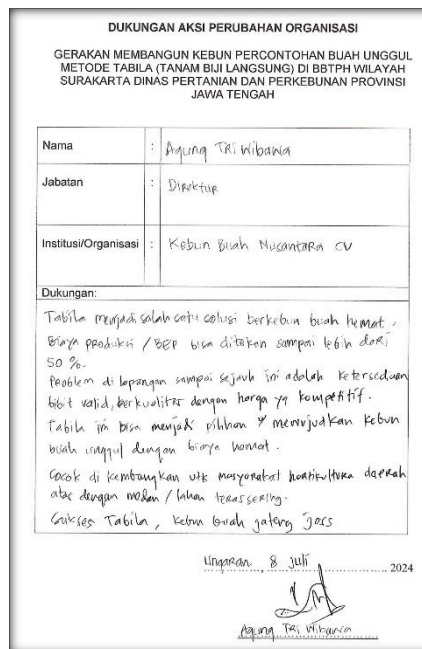 DUKUNGAN AKSI PERUBAHAN ORGANISASI
GERAKAN MEMBANGUN KEBUN PERCONTOHAN BUAH UNGGUL
METODE TABILA (TANAM BIJI LANGSUNG) DI BBTPH WILAYAH
SURAKARTA DINAS PERTANIAN DAN PERKEBUNAN PROVINSI
JAWA TENGAH
Nama : Agung TRi Wibawa
Jabatan : Direktur
Institusi/Organisasi : Kebun Buah Nusantara CV
Dukungan:
Tabila menjadi salah satu solusi berkebun buah hemat.
Biaya produksi / BEP bisa ditekan sampai lebih dari
50 %.
Problem di lapangan sampai sejauh ini adalah ketersediaan
bibit valid, berkualitas dengan harga yg kompetitif.
Tabila ini bisa menjadi pilihan mewujudkan kebun
buah unggul dengan biaya hemat.
Cocok di kembangkan utk masyarakat hortikultura daerah
atas dengan / lahan terassering.
Sukses Tabila, kebun buah jateng joss
Ungaran, 8 Juli 2024
Agung TRi Wibawa